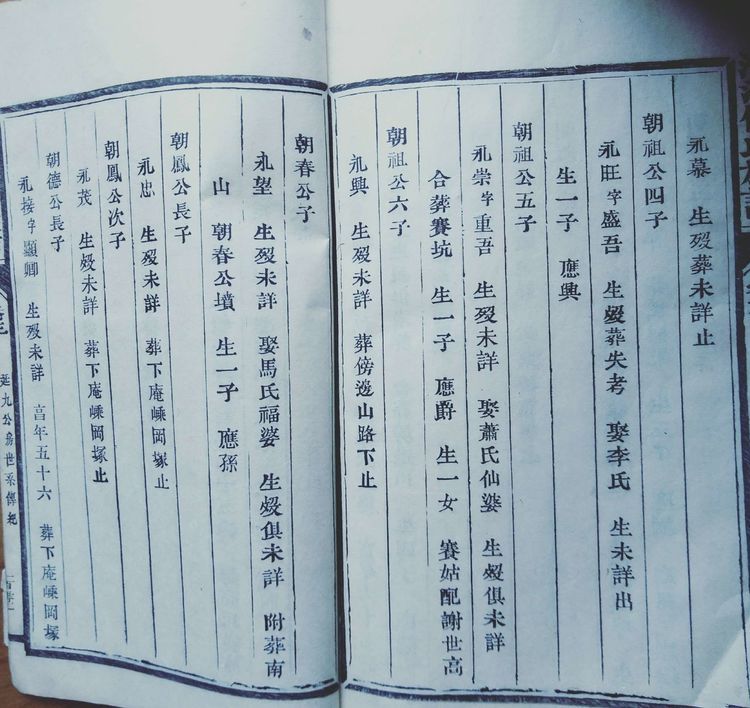 永慕　生殁葬未詳止
朝祖公四子
永旺字盛吾　生殁葬失考　娶李氏　生未詳出
生一子　應興
朝祖公五子
永崇字重吾　生殁未詳　娶蕭氏仙婆　生殁俱未詳
合葬賽坑　生一子　應爵　生一女　賽姑配謝世高
朝祖公六子
永興　生殁未詳　葬傍邊山路下止
朝春公子
永望　生殁未詳　娶馬氏福婆　生殁俱未詳　附葬南
山　朝春公墳　生一子　應孫
朝鳳公長子
永忠　生殁未詳　葬下庵嵊岡塚止
朝鳳公次子
永茂　生殁未詳　葬下庵嵊岡塚止
朝德公長子
永接字顯卿　生殁未詳　享年五十六　葬下庵嵊岡塚
延九公房世系傳紀